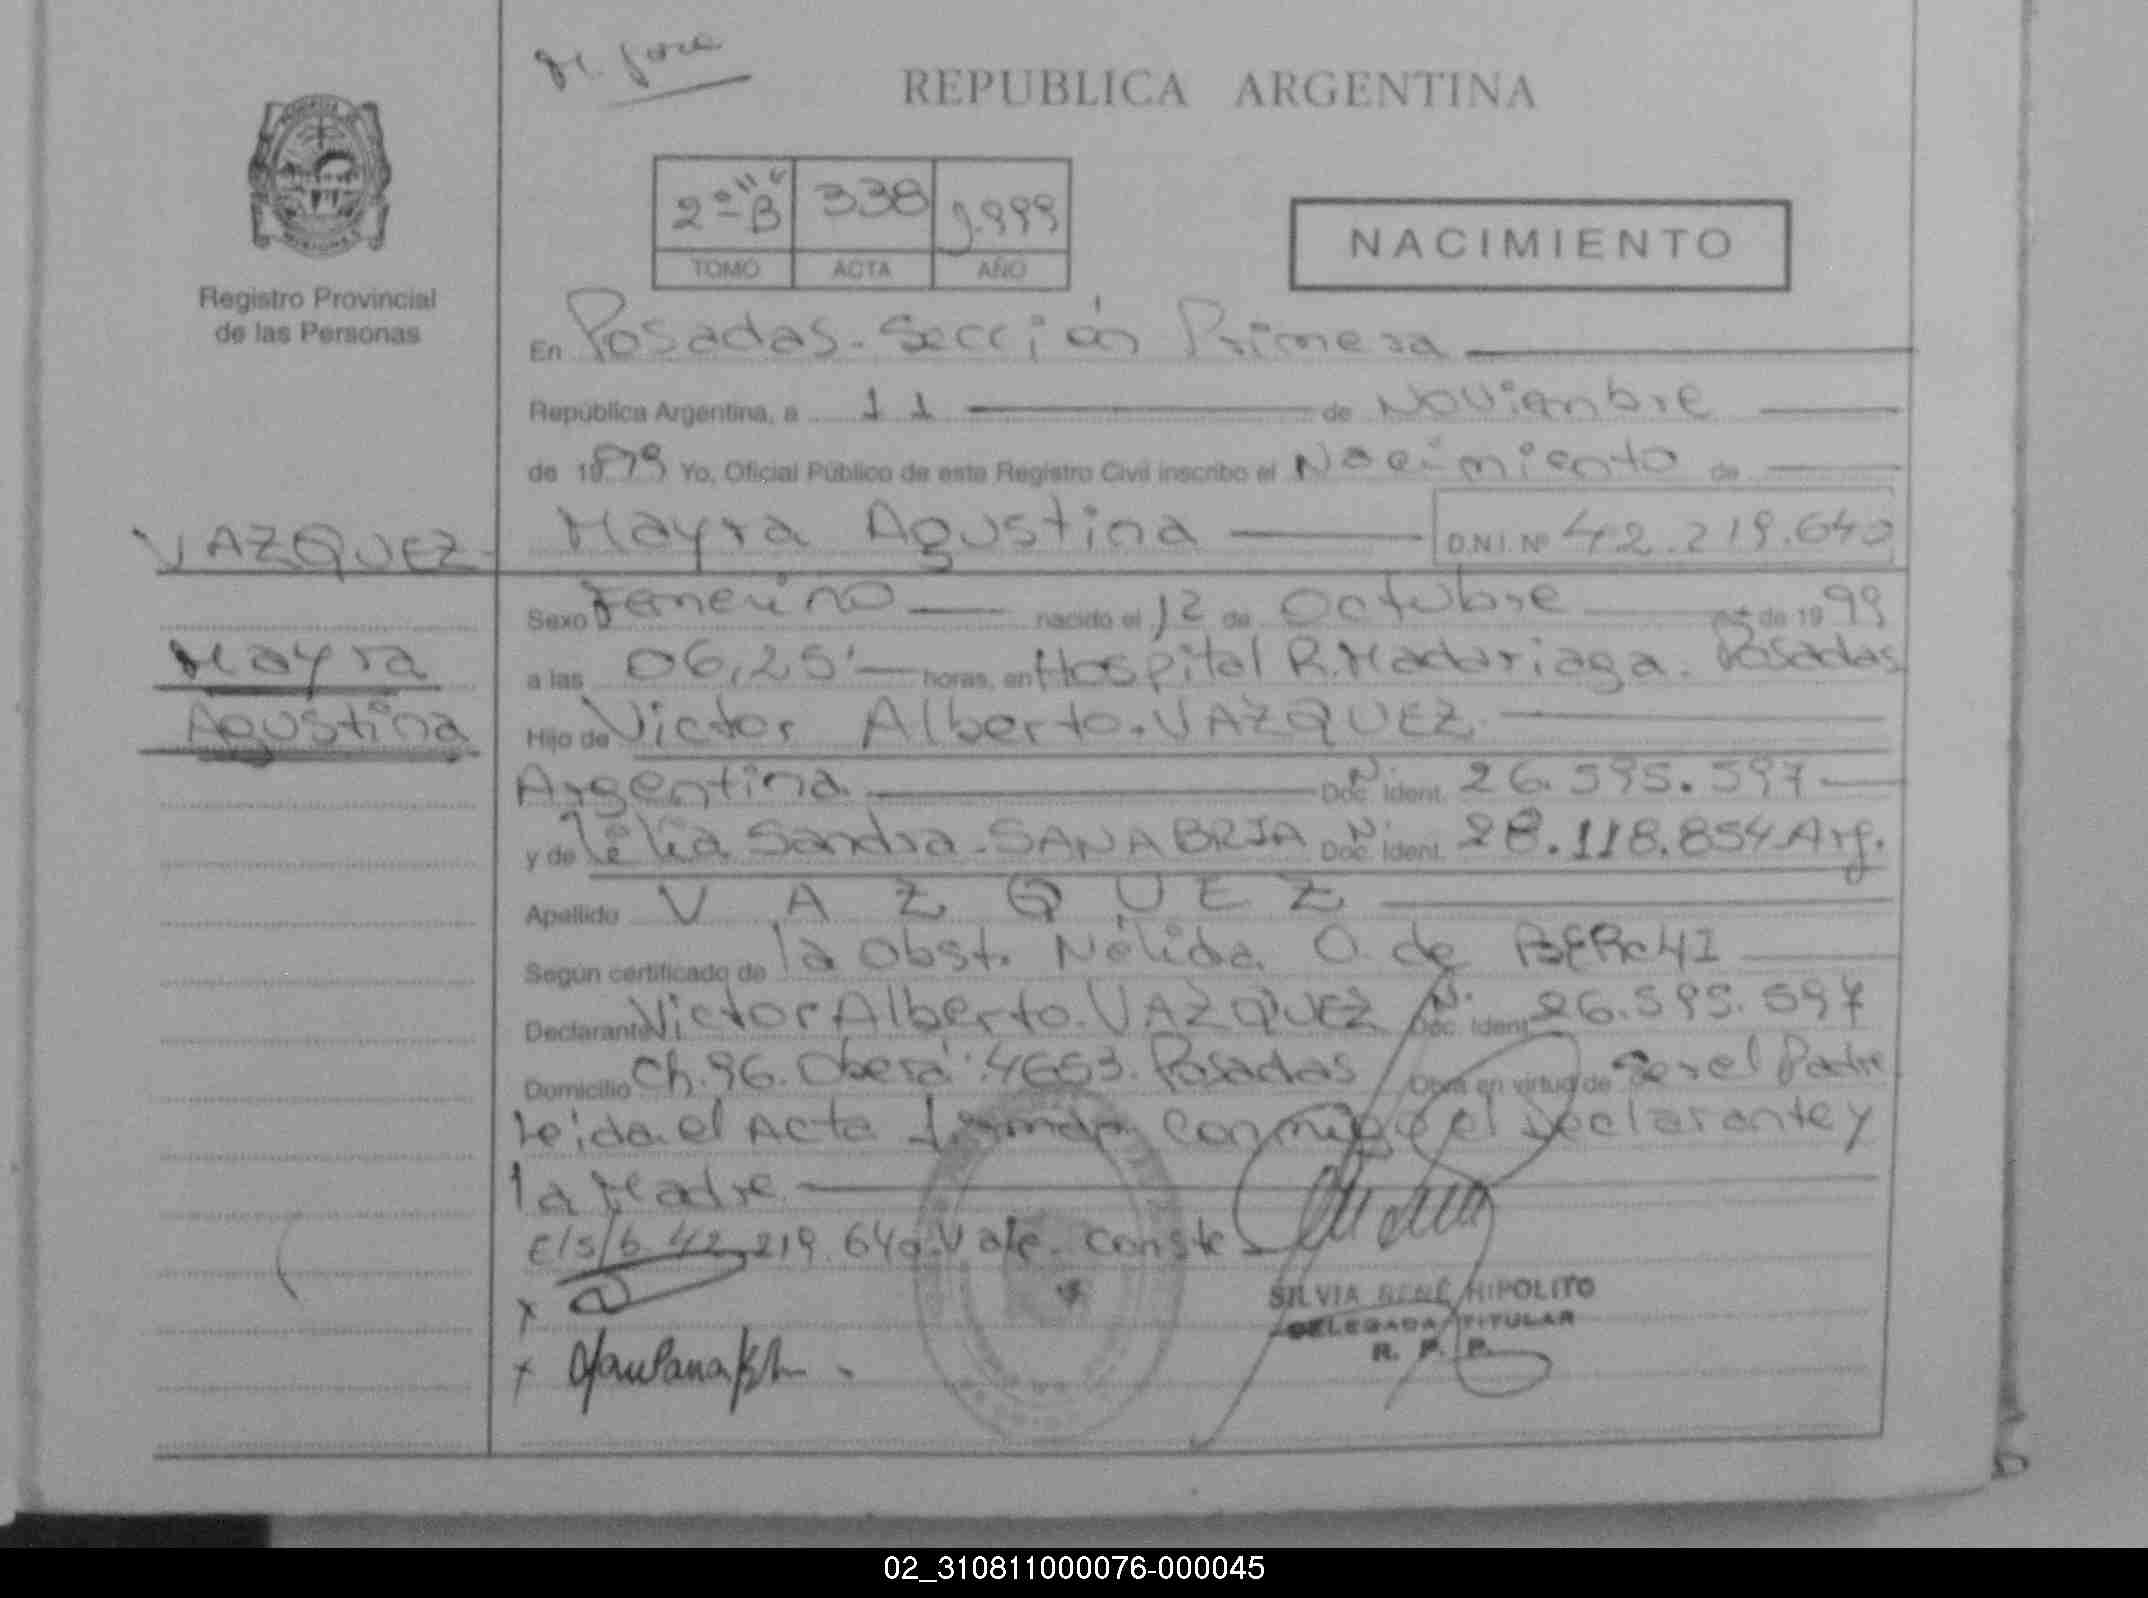 REPUBLICA ARGENTINA
2º "B" 338 1.999
TOMO ACTA AÑO
NACIMIENTO
Registro Provincial
de las Personas
En Posadas. Sección Primera
República Argentina, a 11 de Noviembre
de 1999 Yo, Oficial Público de este Registro Civil inscribo el Nacimiento de
VAZQUEZ
Mayra Agustina D.N.I. Nº 42.219.640
Mayra
Agustina
Sexo Femenino nacido el 12 de Octubre de 1999
a las 06,25' horas, en Hospital R. Madariaga. Posadas
Hijo de Victor Alberto. VAZQUEZ.
Argentina Doc. Ident. 26.595.597
y de Sandra. SANABRIA Doc. Ident. 28.118.854 Arg.
Apellido V A Z Q U E Z
Según certificado de la Obst. Nélida O. de
Declarante Victor Alberto. VAZQUEZ Doc. Ident. 26.595.597
Domicilio Ch. 96. Oberá. 4653. Posadas Obra en virtud de Ser el Padre
Leida el Acta firman conmigo el Declarante y
la Madre
E/s/b 42.219.640. Vale. Conste
SILVIA RENÉ HIPOLITO
DELEGADA TITULAR
R. P. P.
02_310811000076-000045